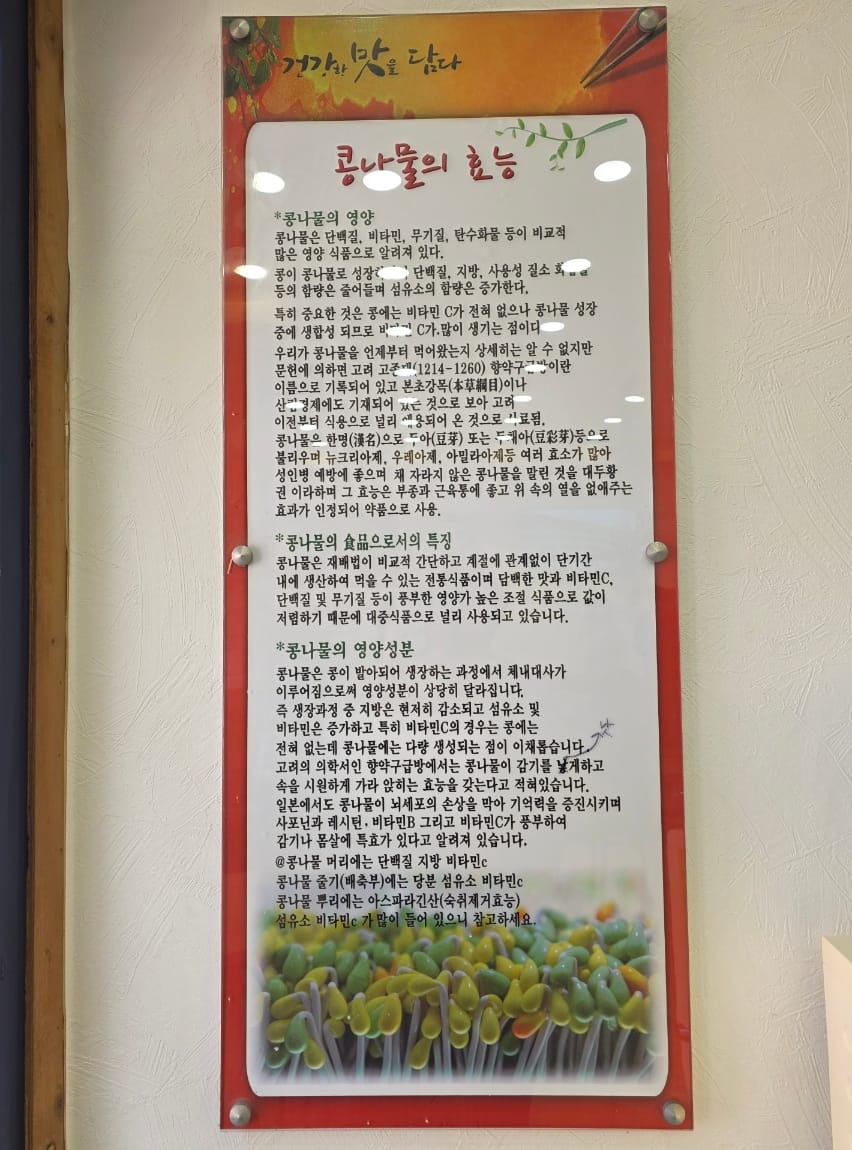 건강한 맛을 담다
콩나물의 효능
*콩나물의 영양
콩나물은 단백질, 비타민, 무기질, 탄수화물 등이 비교적
많은 영양 식품으로 알려져 있다.
콩이 콩나물로 단백질, 지방, 사용성 질소
등의 함량은 줄어들며 섬유소의 함량은 증가한다.
특히 중요한 것은 콩에는 비타민 C가 전혀 없으나 콩나물 성장
중에 생합성 되므로 C가.많이 생기는 점이다
우리가 콩나물을 언제부터 먹어왔는지 상세히는 알 수 없지만
문헌에 의하면 고려 (1214-1260)
이름으로 기록되어 있고 본초강목(本草綱目)이나
기재되어 있는 것으로 보아 고려
이전부터 식용으로 널리 애용되어 온 것으로
콩나물은 한명(漢名)으로 두아(豆芽) 또는 (豆彩芽)등으로
불리우며 뉴크리아제, 우레아제, 아밀라아제등 여러 효소가 많아
성인병 예방에 좋으며 채 자라지 않은 콩나물을 말린 것을 대두황
권 이라하며 그 효능은 부종과 근육통에 좋고 위 속의 열을 없애주는
효과가 인정되어 약품으로 사용.
*콩나물의 食品으로서의 특징
콩나물은 재배법이 비교적 간단하고 계절에 관계없이 단기간
내에 생산하여 먹을 수 있는 전통식품이며 담백한 맛과 비타민C,
단백질 및 무기질 등이 풍부한 영양가 높은 조절 식품으로 값이
저렴하기 때문에 대중식품으로 널리 사용되고 있습니다.
*콩나물의 영양성분
콩나물은 콩이 발아되어 생장하는 과정에서 체내대사가
이루어짐으로써 영양성분이 상당히 달라집니다.
즉 생장과정 중 지방은 현저히 감소되고 섬유소 및
비타민은 증가하고 특히 비타민C의 경우는 콩에는
전혀 없는데 콩나물에는 다량 생성되는 점이 이채롭습니다.
낫
고려의 의학서인 향약구급방에서는 콩나물이 감기를 낳게하고
속을 시원하게 가라 앉히는 효능을 갖는다고 적혀있습니다.
일본에서도 콩나물이 뇌세포의 손상을 막아 기억력을 증진시키며
사포닌과 레시틴, 비타민B 그리고 비타민C가 풍부하여
감기나 몸살에 특효가 있다고 알려져 있습니다.
@콩나물 머리에는 단백질 지방 비타민c
콩나물 줄기(배축부)에는 당분 섬유소 비타민c
콩나물 뿌리에는 아스파라긴산(숙취제거효능)
섬유소 비타민c 가 많이 들어 있으니 참고하세요.